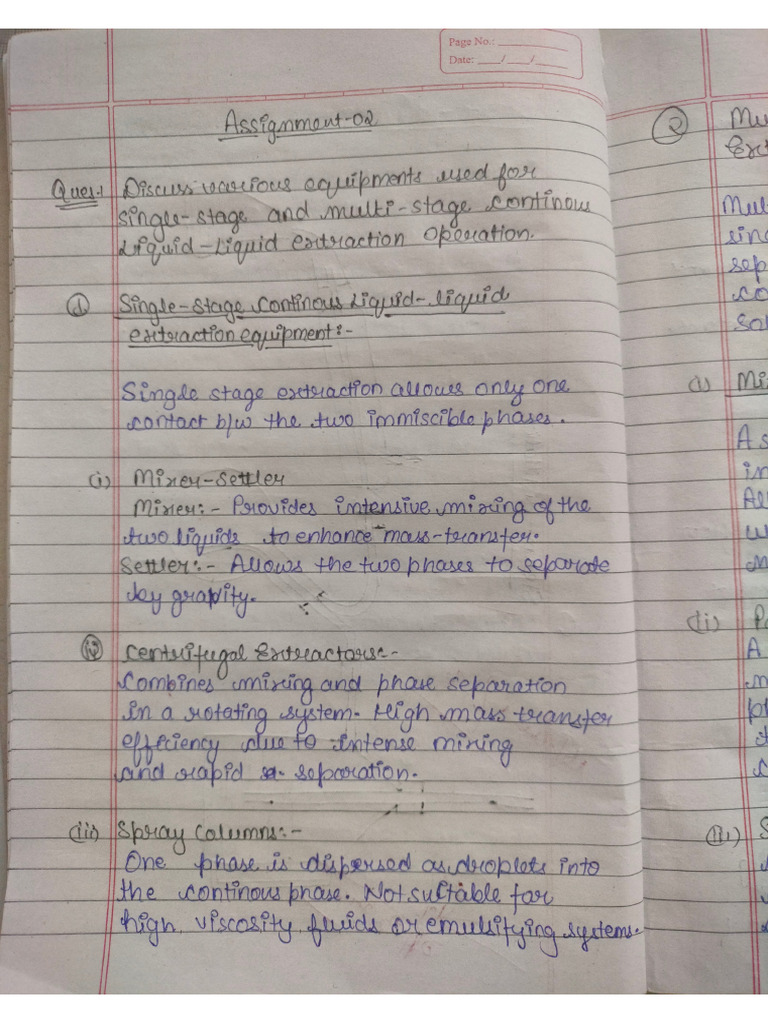 Page No.:
Date: / /
Assignment-02
Ques.1 Discuss various equipments used for
single-stage and multi-stage continous
Liquid-Liquid extraction operation.
① Single-stage continous Liquid-liquid
extraction equipment:-
Single stage extraction allows only one
contact b/w the two immiscible phases.
(i) Mixer-Settler
Mixer:- Provides intensive mixing of the
two liquids to enhance mass-transfer.
Settler:- Allows the two phases to separate
by gravity.
Centrifugal Extractors:-
Combines mixing and phase separation
in a rotating system. High mass transfer
efficiency due to intense mixing
and rapid separation.
(iii) Spray Columns:-
One phase is dispersed as droplets into
the continous phase. Not suitable for
high viscosity fluids or emulsifying systems.
②
(i)
A
(ii)
A
(iii)